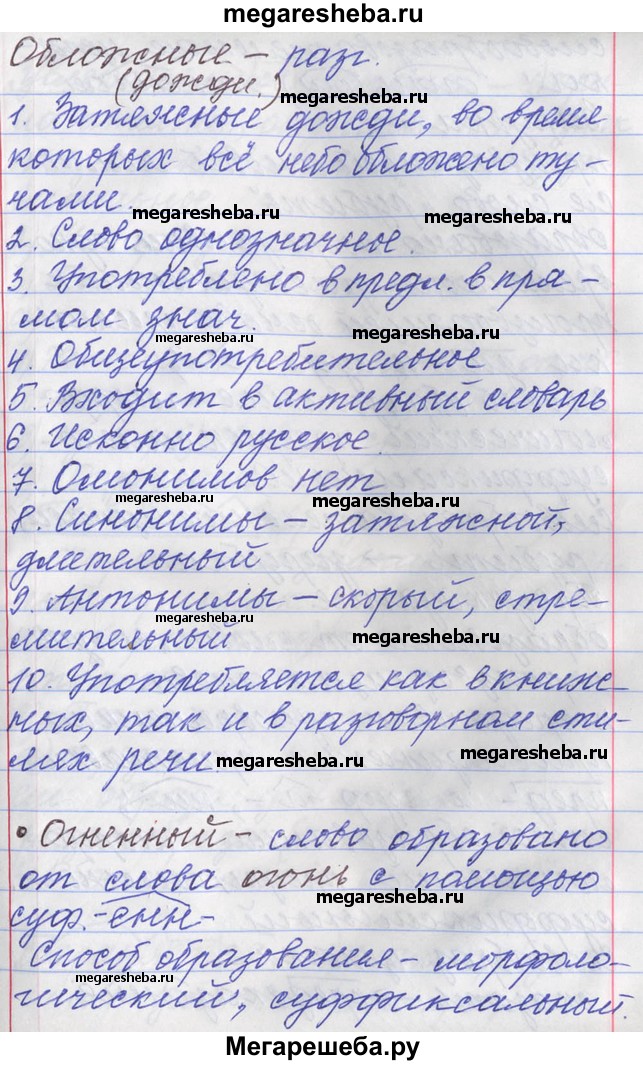 megaresheba.ru
Обложные – разг.
(дожди.)
megaresheba.ru
1. Затяжные дожди, во время
которых всё небо обложено ту-
чами.
megaresheba.ru
megaresheba.ru
2. Слово однозначное.
3. Употреблено в предл. в пря-
мом знач.
megaresheba.ru
megaresheba.ru
4. Общеупотребительное
5. Входит в активный словарь
6. Исконно русское.
7. Омонимов нет
megaresheba.ru
megaresheba.ru
8. Синонимы – затяжной,
длительный
9. Антонимы – скорый, стре-
мительный
megaresheba.ru
10. Употребляется как в книж-
ных, так и в разговорном сти-
лях речи.
megaresheba.ru
megaresheba.ru
• Огненный – слово образовано
от слова огонь с помощью
суф. -енн-
Способ образования – морфоло-
megaresheba.ru
гический, суффиксальный.
Мегарешеба.ру